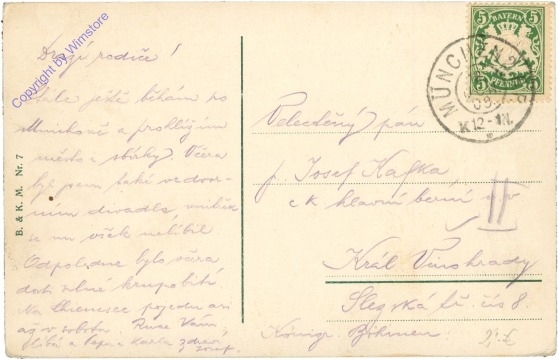 Drazí rodiče!
Stále ještě běhám po
Mnichově a prohlížím
město a sbírky. Včera
byl jsem také ve dvor-
ním divadle,
se mi však nelíbil
Odpoledne bylo včera
dosti silné krupobití.
Na Chiemsee pojedu asi
až v sobotu. Ruce Vám,
Josef.
Copyright by Wimstore
B. & K. M. Nr. 7
5 BAYERN 5
5 PFENNIG 5
MÜNCHEN
K 12-1N.
Velectěný pán
p. Josef Kafka,
c k hlavní berní
Král Vinohrady
Slezská tř. čís 8
Königr. Böhmen
II